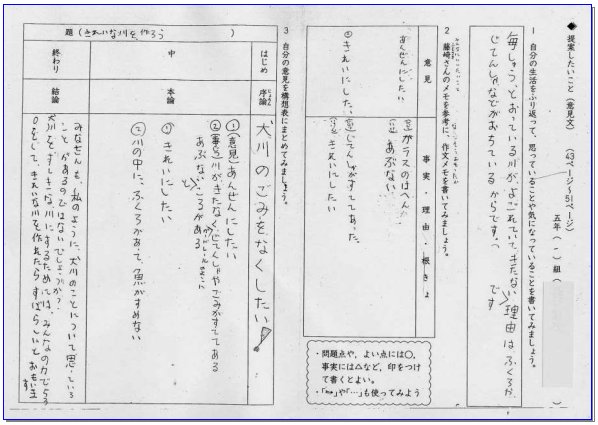 ◆ 提案したいこと(意見文) (43ページ〜51ページ)
五年(1)組(
1 自分の生活をふり返って、思っていることや気になっていることを書いてみましょう。
毎しゅうとおっている川が、よごれていて、きたないです
理由はふくろか、
じてんしゃなどがおちているからです。
2 藤崎さんのメモを参考に、作文メモを書いてみましょう。
意見
事実・理由・根きょ
あんぜんにしたい
ガラスのはへん
あぶない。
きれいにした。
じてんしゃがすててあった。
きれいにしたい
・問題点や、よい点には○、
事実には△など、印をつけ
て書くとよい。
・「no」や「…」も使ってみよう
3 自分の意見を構想表にまとめてみましょう。
題(きれいな川を作ろう )
はじめ
中
終わり
序論
本論
結論
犬川のごみをなくしたい!
①(意見)あんぜんにしたい
②(事実)川がきたなく、じてんしゃやごみがすててある
あぶないところがある
① きれいにしたい
② 川の中に、ふくろがあって、魚がすめない
みなさんも、私のように、犬川のことについて思っている
ことがあるのではないでしょうか?
犬川をすてきな川にするためには、みんなの力で
をして、きれいな川を作れたらすばらしいとおもいます